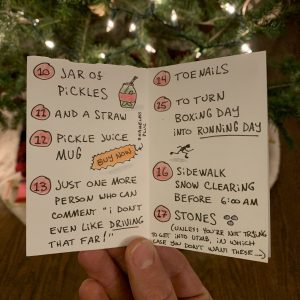 10 JAR OF
PICKLES
11 AND A STRAW
12 PICKLE JUICE
MUG
BUY NOW
13 JUST ONE MORE
PERSON WHO CAN
COMMENT "I DON'T
EVEN LIKE DRIVING
THAT FAR!"
14 TOENAILS
15 TO TURN
BOXING DAY
INTO RUNNING DAY
16 SIDEWALK
SNOW CLEARING
BEFORE 6:00 AM
17 STONES
(UNLESS YOU'RE NOT TRYING
TO GET INTO UTMB, IN WHICH
CASE YOU DON'T WANT THESE...)